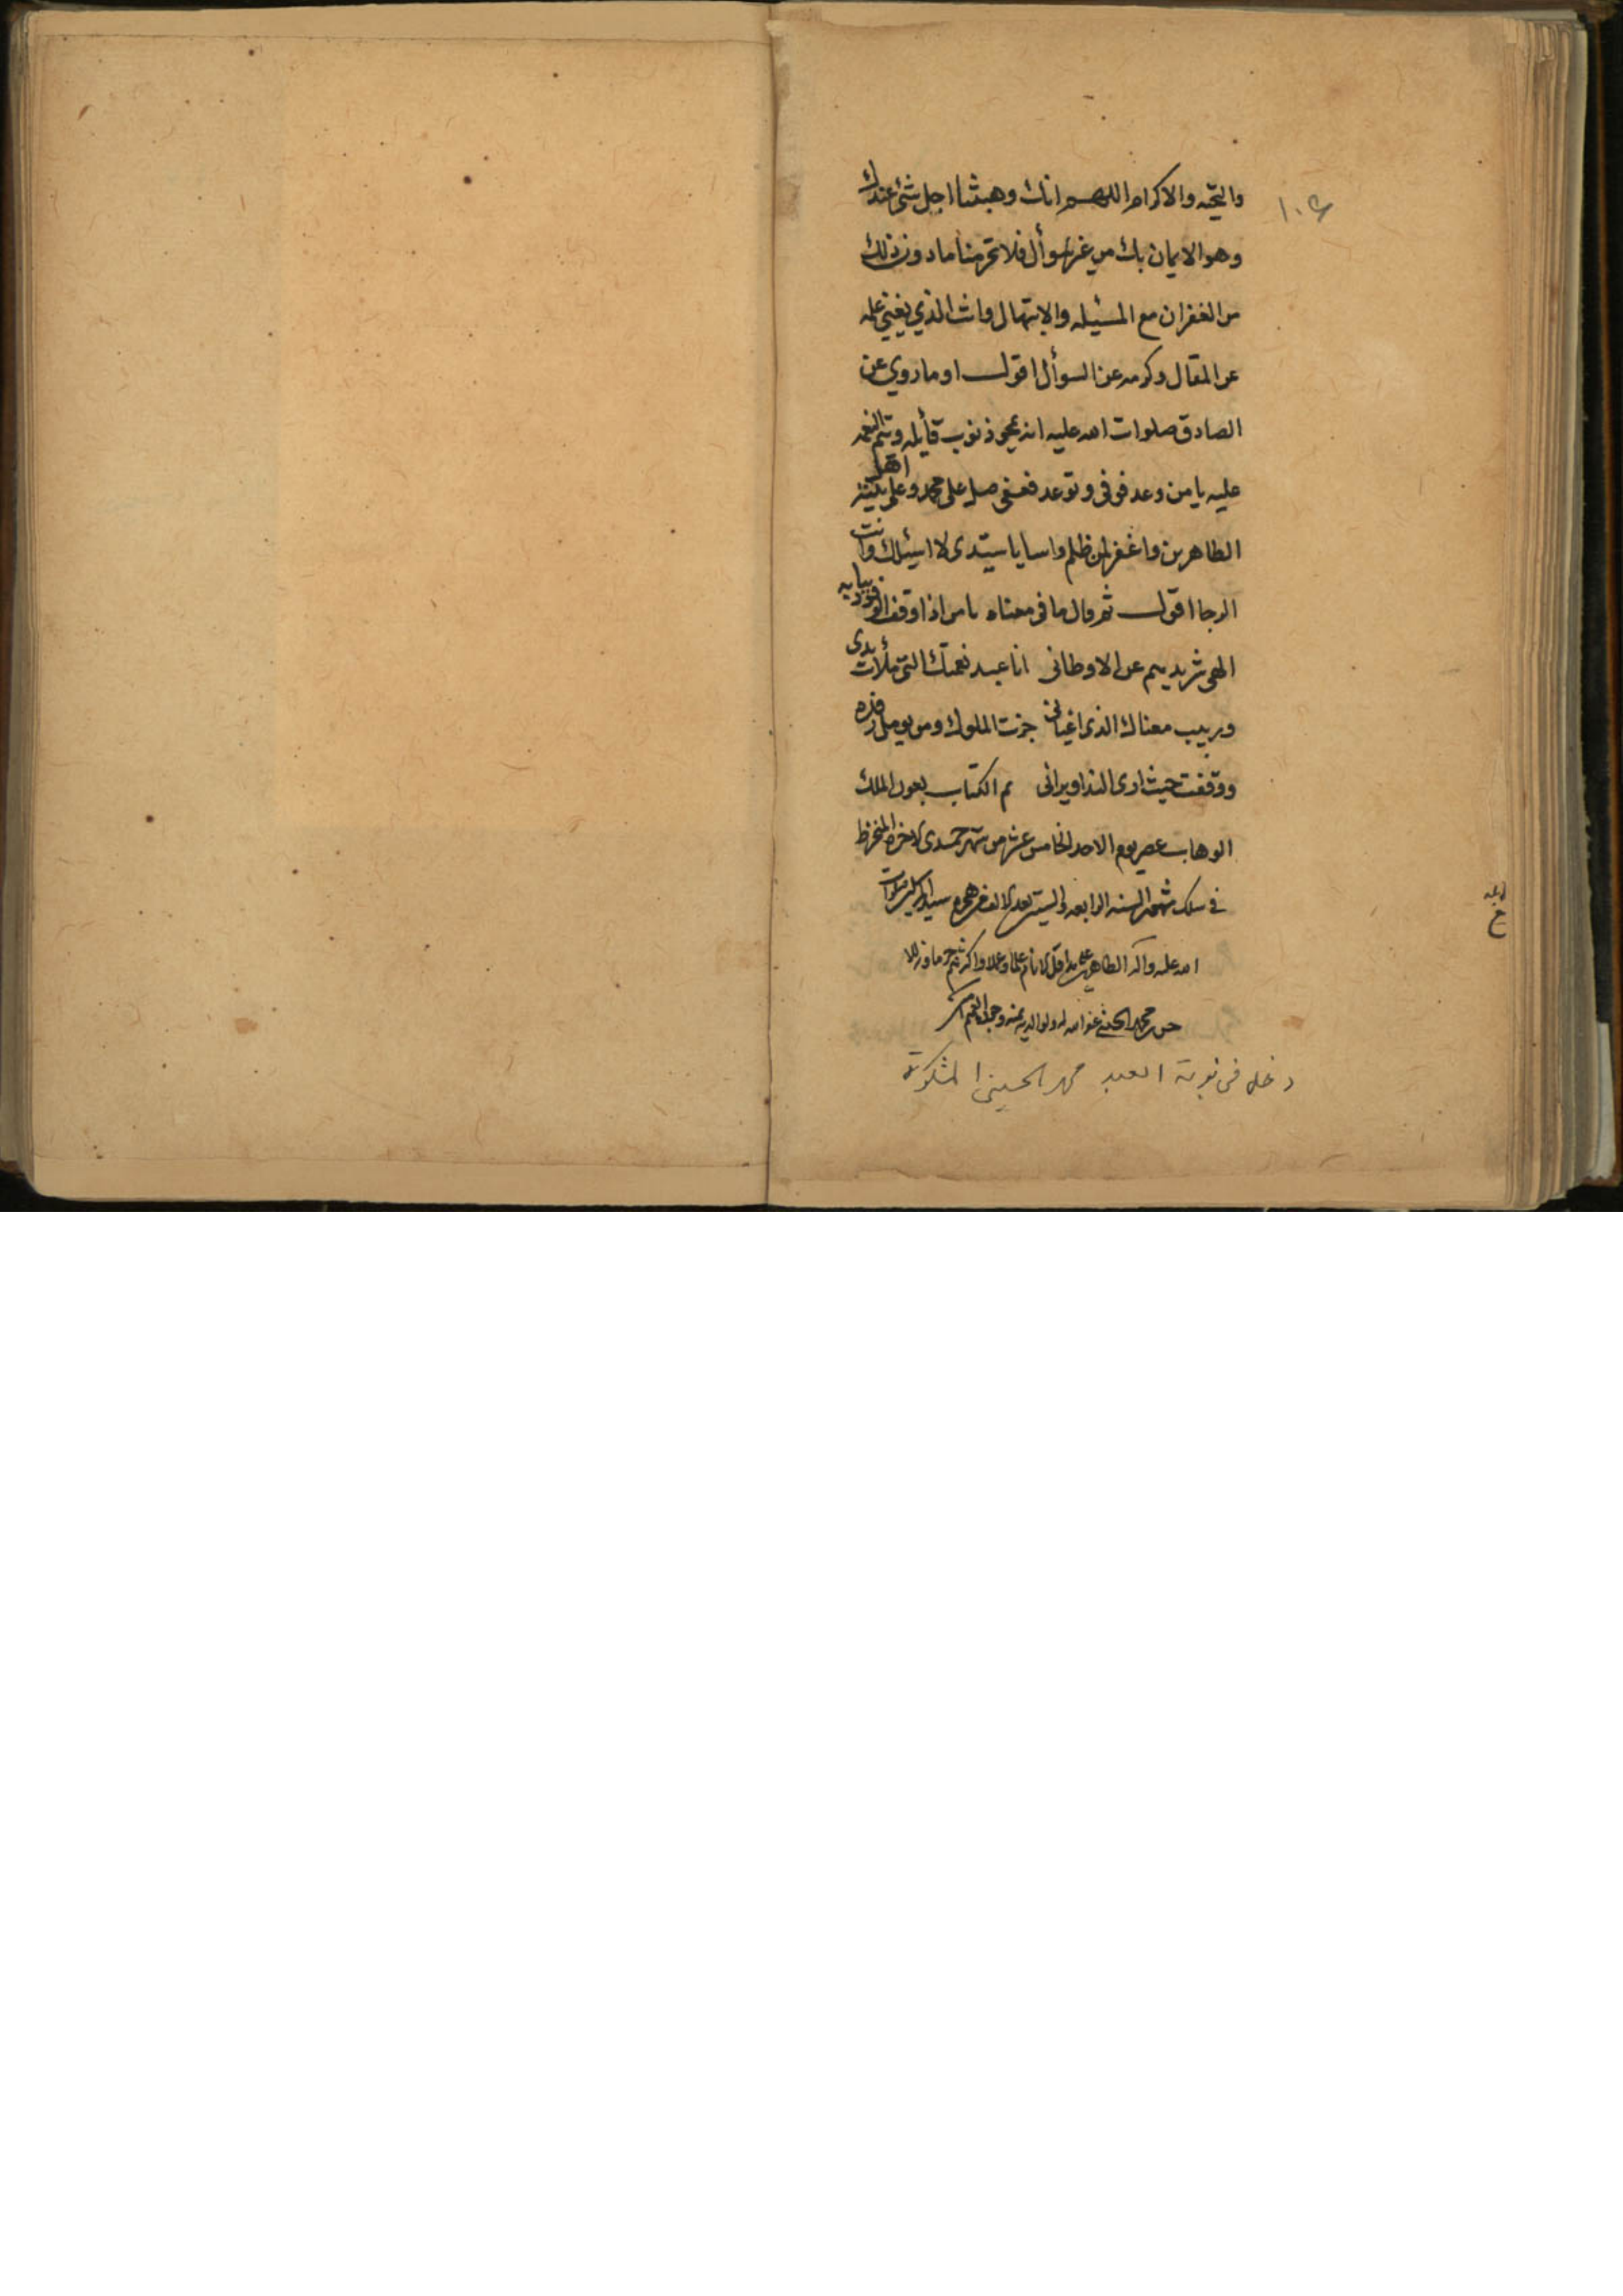 ١٠٤
والتحيه والاكرام اللهم انك وهبتنا اجل شئ عندك
وهو الايمان بك من غير سوأل فلا تحرمنا مادون ذلك
من الغفران مع المسئيله والابتهال وانت الذي يغني علمه
عن المقال وكرمه عن السوأل اقول او ماروي عن
الصادق صلوات الله عليه انه يمحو ذنوب قأيله وتتم النعمه
عليه يامن وعد فوفى وتوعد فعفى صل على محمد وعلى اهل بيته
الطاهرين واغفر لمن ظلم واسا يا سيدى لا اسئلك وانت
الرجا اقول ثم قال ما فى معناه يا من اذا وقف الوفود ببابه
الهى شريدهم عن الاوطانى انا عبد نعمتك التى ملأت يدى
وربيب مغناك الذى اغنانى جزت الملوك ومن يومل رفده
ووقفت حيث ارى الندا ويرانى تم الكتاب بعون الملك
الوهاب عصر يوم الاحد الخامس عشر من شهر جمدى الاخره المنخرط
فى سلك شهور السنه الرابعه والستين بعد الالف من هجرة سيد المرسلين صلوات
الله عليه واله الطاهرين على يد اقل الانام علما وعملا واكثرهم جرما وزللا
محمد الحسينى عفى الله له ولوالديه بمنه
دخل فى نوبة العبد محمد الحسينى المشكوة